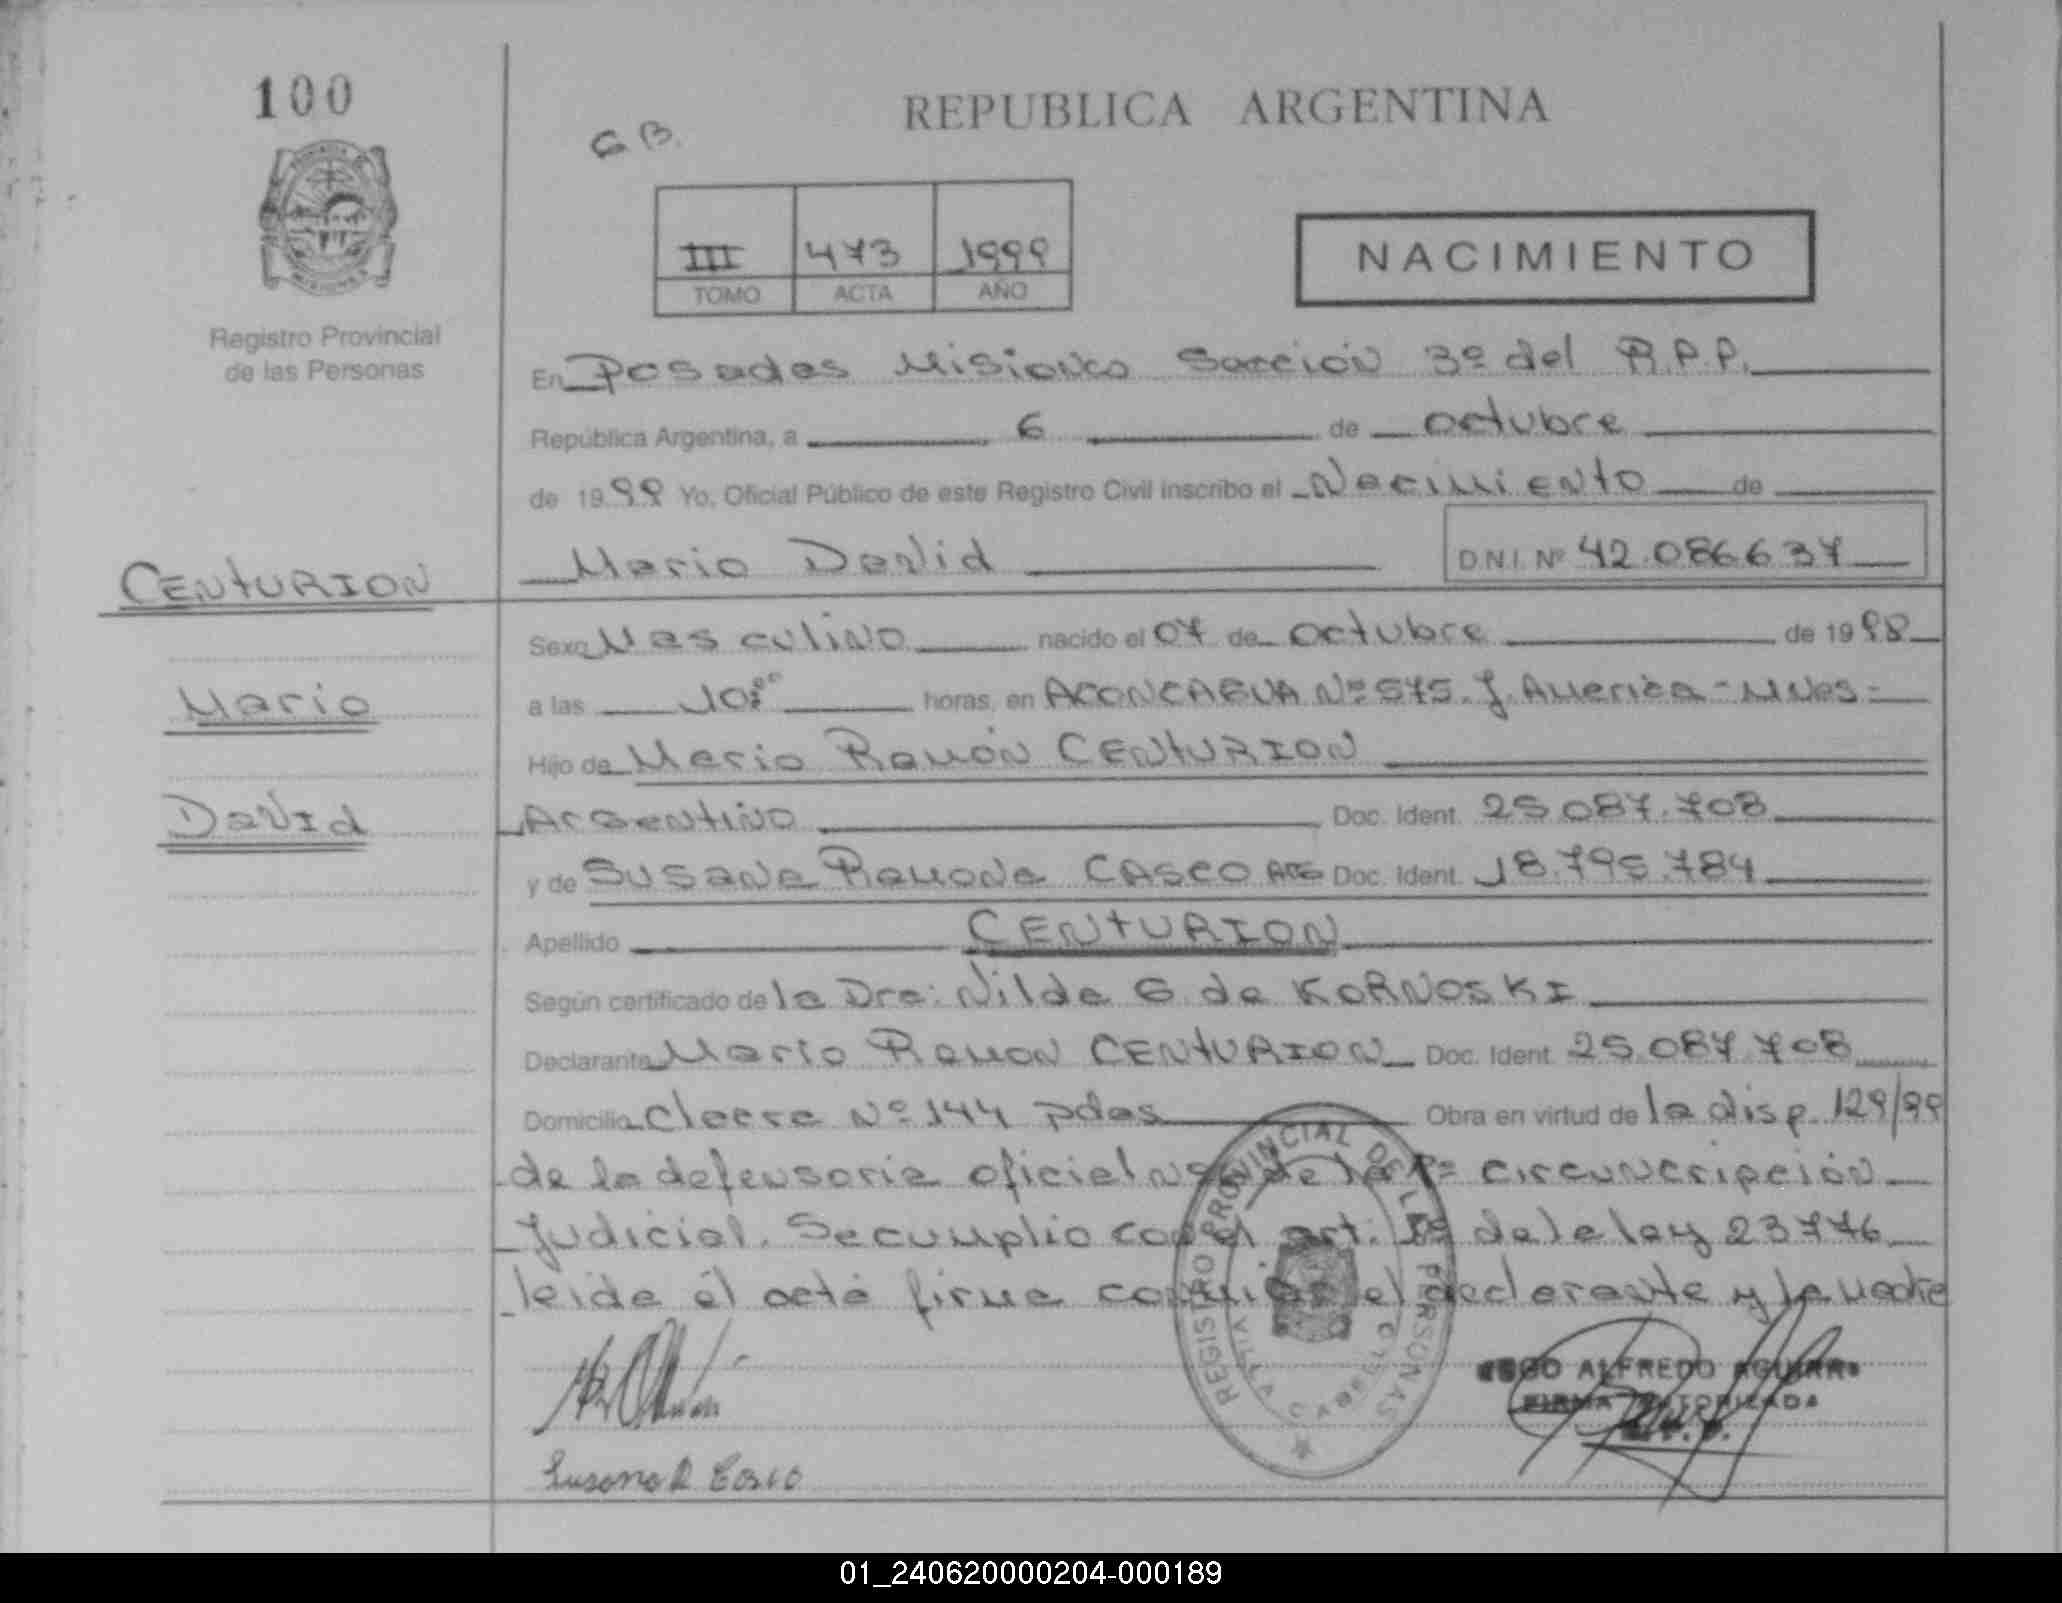 100
REPUBLICA ARGENTINA
G B.
III 473 1999
TOMO ACTA AÑO
NACIMIENTO
Registro Provincial
de las Personas
En Posadas Misiones Sección 3º del R.P.P.
República Argentina, a 6 de octubre
de 1999 Yo, Oficial Público de este Registro Civil inscribo el Nacimiento de
CENTURION
Mario David D.N.I. Nº 42.086.637
Sexo Masculino nacido el 07 de octubre de 1998
Mario
a las 10:00 horas, en ACONCAGUA Nº 575. J. America - Mnes -
Hijo de Mario Ramón CENTURION
David
Argentino Doc. Ident. 25.087.708
y de Susana Ramona CASCO Doc. Ident. 18.795.784
Apellido CENTURION
Según certificado de la Dra: Nilda G. de KORNOSKI
Declarante Mario Ramon CENTURION Doc. Ident. 25.087.708
Domicilio Nº 144 pdas Obra en virtud de la disp. 129/99
de la defensoria oficial de la 1º circuncripción
Judicial. Se cumplio con el art. de la ley 23776
leida el acta firma conmigo el declarante y la madre
REGISTRO PROVINCIAL DE LAS PERSONAS
CABELLO
ALFREDO AGUIRRE
FIRMA AUTORIZADA
Susana R Casco
01_240620000204-000189